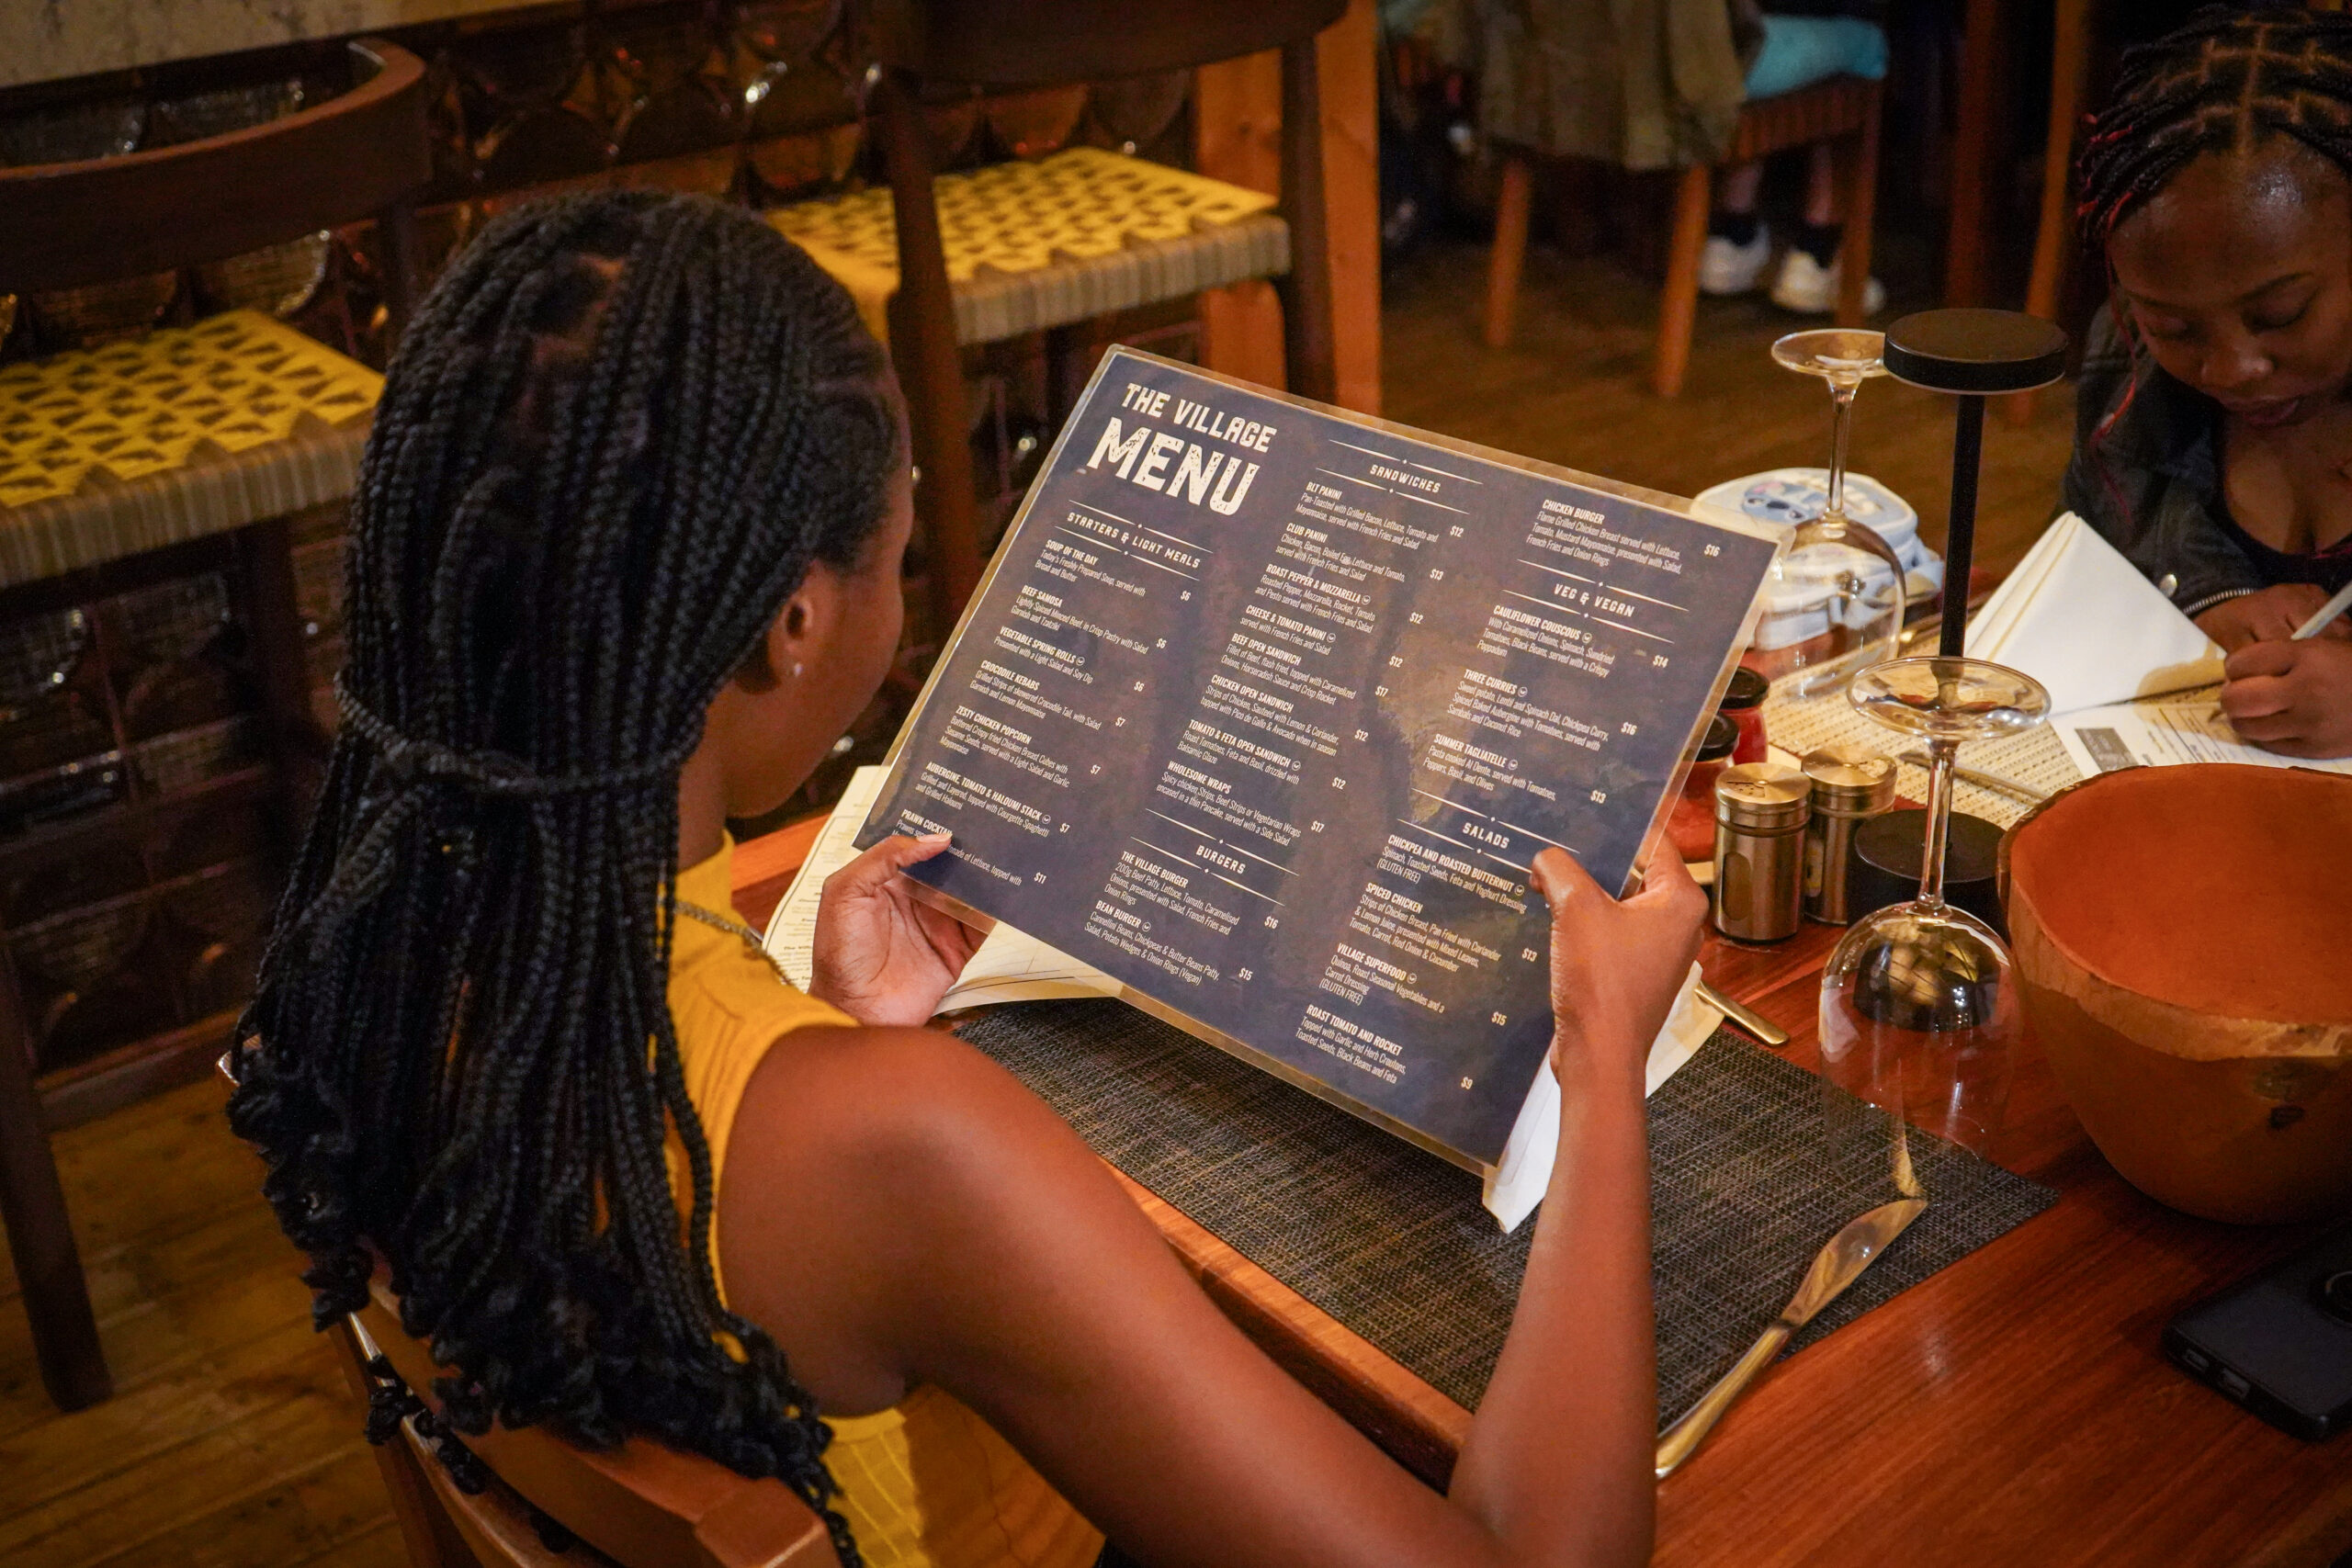 THE VILLAGE
MENU
STARTERS & LIGHT MEALS
SOUP OF THE DAY
Today's Freshly Prepared Soup, served with
Bread and Butter
$6
BEEF SAMOSA
Lightly Spiced Minced Beef, in Crisp Pastry with Salad
Garnish and Tzatziki
$6
VEGETABLE SPRING ROLLS
Presented with a Light Salad and Soy Dip
$6
CROCODILE KEBABS
Grilled Strips of skewered Crocodile Tail, with Salad
Garnish and Lemon Mayonnaise
$7
ZESTY CHICKEN POPCORN
Battered Crispy fried Chicken Breast Cubes with
Sesame Seeds, served with a Light Salad and Garlic
Mayonnaise
$7
AUBERGINE, TOMATO & HALOUMI STACK
Grilled and Layered, topped with Courgette Spaghetti
and Grilled Haloumi
$7
PRAWN COCKTAIL
Prawns
of Lettuce, topped with
$11
SANDWICHES
BLT PANINI
Pan-Toasted with Grilled Bacon, Lettuce, Tomato and
Mayonnaise, served with French Fries and Salad
$12
CLUB PANINI
Chicken, Bacon, Boiled Egg, Lettuce and Tomato,
served with French Fries and Salad
$13
ROAST PEPPER & MOZZARELLA
Roasted Pepper, Mozzarella, Rocket, Tomato
and Pesto served with French Fries and Salad
$12
CHEESE & TOMATO PANINI
served with French Fries and Salad
$12
BEEF OPEN SANDWICH
Fillet of Beef, flash fried, topped with Caramelized
Onions, Horseradish Sauce and Crisp Rocket
$17
CHICKEN OPEN SANDWICH
Strips of Chicken, Sauteed with Lemon & Coriander,
topped with Pico de Gallo & Avocado when in season
$12
TOMATO & FETA OPEN SANDWICH
Roast Tomatoes, Feta and Basil, drizzled with
Balsamic Glaze
$12
WHOLESOME WRAPS
Spicy chicken Strips, Beef Strips or Vegetarian Wraps
encased in a thin Pancake, served with a Side Salad
$17
BURGERS
THE VILLAGE BURGER
200g Beef Patty, Lettuce, Tomato, Caramelized
Onions, presented with Salad, French Fries and
Onion Rings
$16
BEAN BURGER
Cannellini Beans, Chickpeas & Butter Beans Patty,
Salad, Potato Wedges & Onion Rings (Vegan)
$15
CHICKEN BURGER
Flame Grilled Chicken Breast served with Lettuce,
Tomato, Mustard Mayonnaise, presented with Salad,
French Fries and Onion Rings
$16
VEG & VEGAN
CAULIFLOWER COUSCOUS
With Caramelized Onions, Spinach, Sundried
Tomatoes, Black Beans, served with a Crispy
Poppadom
$14
THREE CURRIES
Sweet potato, Lentil and Spinach Dal, Chickpea Curry,
Spiced Baked Aubergine with Tomatoes, served with
Sambals and Coconut Rice
$16
SUMMER TAGLIATELLE
Pasta cooked Al Dente, served with Tomatoes,
Peppers, Basil, and Olives
$13
SALADS
CHICKPEA AND ROASTED BUTTERNUT
Spinach, Toasted Seeds, Feta and Yoghurt Dressing
(GLUTEN FREE)
SPICED CHICKEN
Strips of Chicken Breast, Pan Fried with Coriander
& Lemon Juice, presented with Mixed Leaves,
Tomato, Carrot, Red Onion & Cucumber
$13
VILLAGE SUPERFOOD
Quinoa, Roast Seasonal Vegetables and a
Carrot Dressing
(GLUTEN FREE)
$15
ROAST TOMATO AND ROCKET
Topped with Garlic and Herb Croutons,
Toasted Seeds, Black Beans and Feta
$9